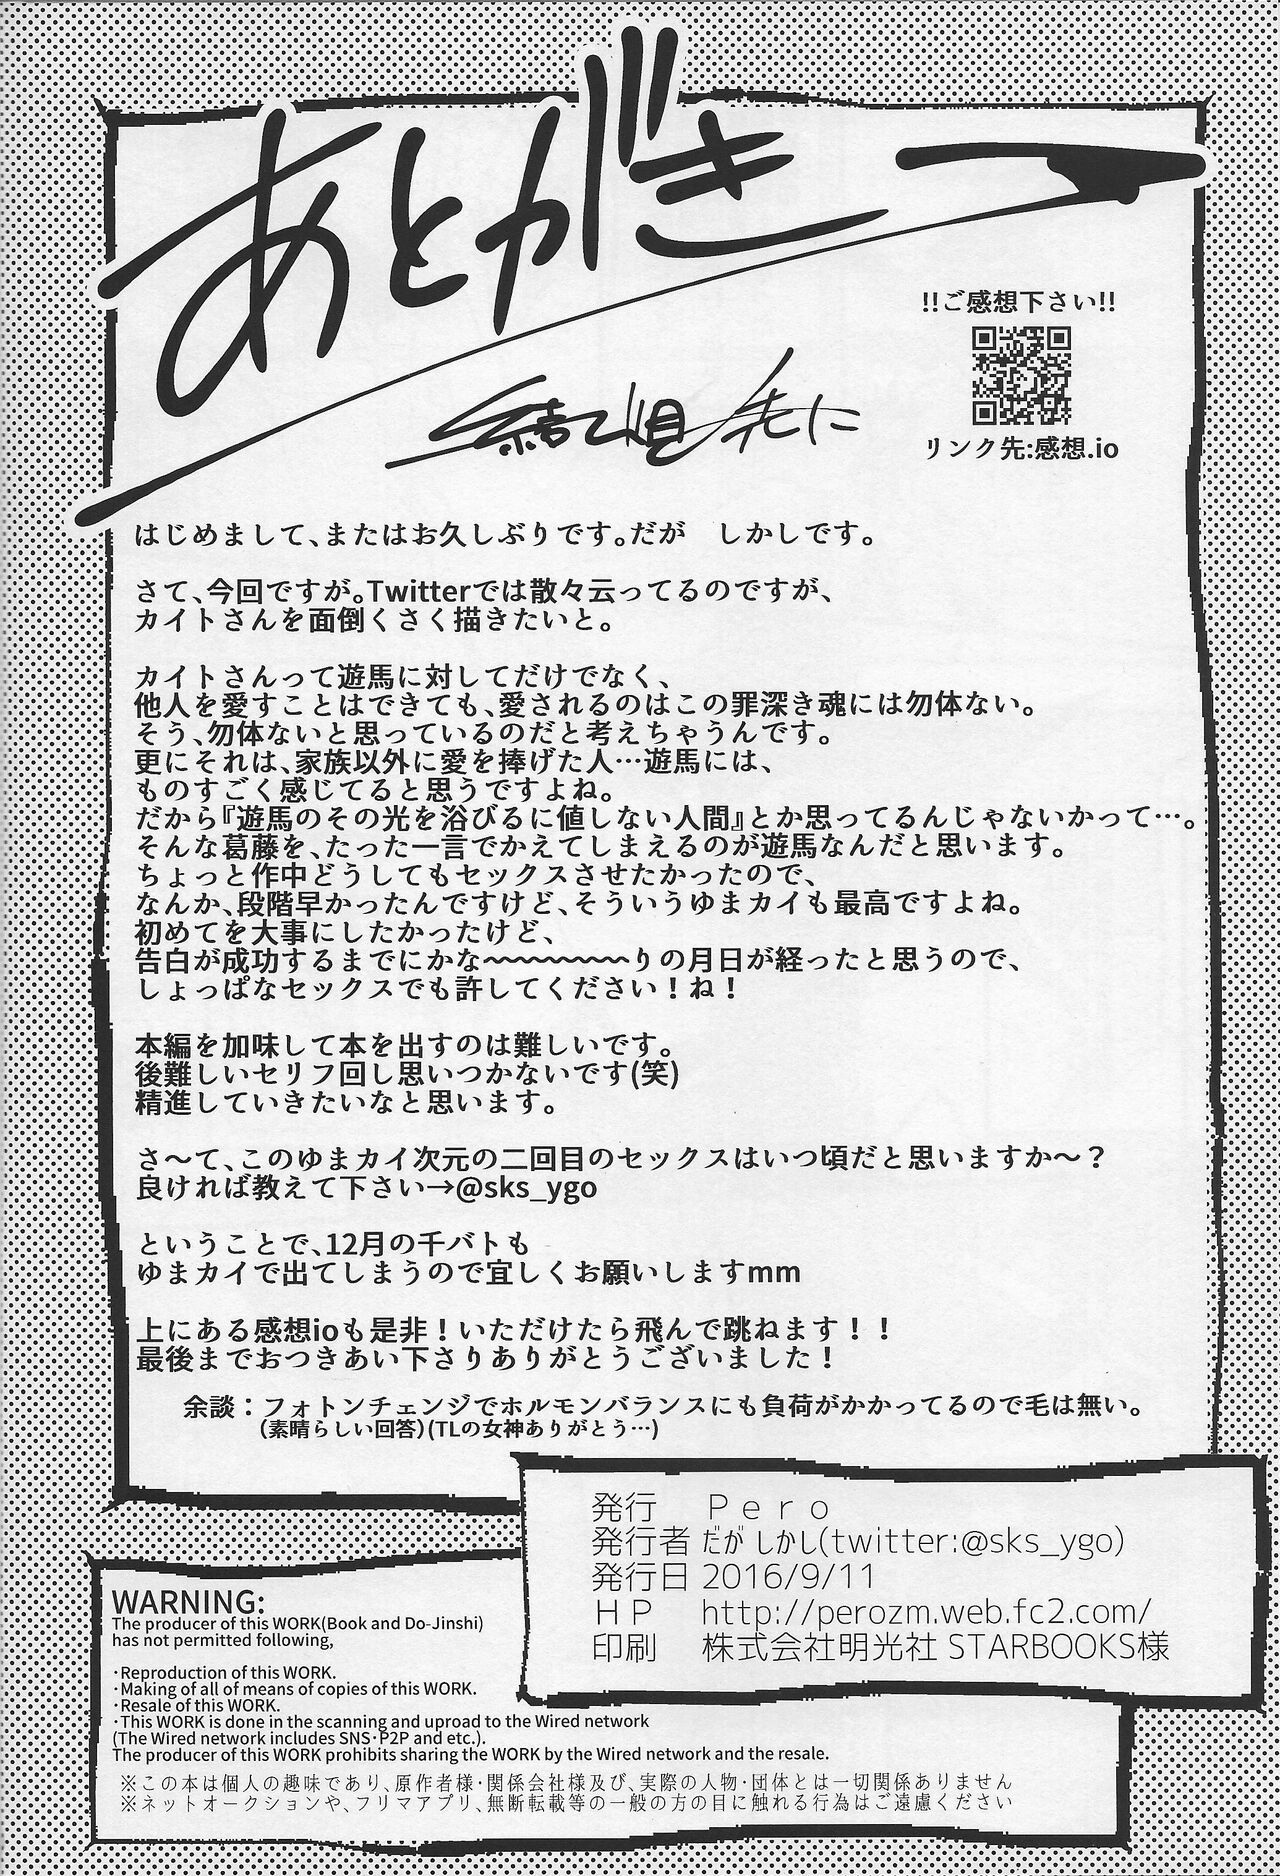 あとがき
!!ご感想下さい!!
リンク先:感想.io
はじめまして、またはお久しぶりです。だが　しかしです。
さて、今回ですが。Twitterでは散々云ってるのですが、
カイトさんを面倒くさく描きたいと。
カイトさんって遊馬に対してだけでなく、
他人を愛すことはできても、愛されるのはこの罪深き魂には勿体ない。
そう、勿体ないと思っているのだと考えちゃうんです。
更にそれは、家族以外に愛を捧げた人…遊馬には、
ものすごく感じてると思うですよね。
だから『遊馬のその光を浴びるに値しない人間』とか思ってるんじゃないかって…。
そんな葛藤を、たった一言でかえてしまえるのが遊馬なんだと思います。
ちょっと作中どうしてもセックスさせたかったので、
なんか、段階早かったんですけど、そういうゆまカイも最高ですよね。
初めてを大事にしたかったけど、
告白が成功するまでにかな～～～～～～～りの月日が経ったと思うので、
しょっぱなセックスでも許してください！ね！
本編を加味して本を出すのは難しいです。
後難しいセリフ回し思いつかないです(笑)
精進していきたいなと思います。
さ～て、このゆまカイ次元の二回目のセックスはいつ頃だと思いますか～？
良ければ教えて下さい→@sks_ygo
ということで、12月の千バトも
ゆまカイで出てしまうので宜しくお願いしますmm
上にある感想ioも是非！いただけたら飛んで跳ねます！！
最後までおつきあい下さりありがとうございました！
余談：フォトンチェンジでホルモンバランスにも負荷がかかってるので毛は無い。
(素晴らしい回答)(TLの女神ありがとう…)
発行　Ｐｅｒｏ
発行者 だが しかし(twitter:@sks_ygo)
発行日 2016/9/11
ＨＰ　http://perozm.web.fc2.com/
印刷　株式会社明光社 STARBOOKS様
WARNING:
The producer of this WORK(Book and Do-Jinshi)
has not permitted following,
･Reproduction of this WORK.
･Making of all of means of copies of this WORK.
･Resale of this WORK.
･This WORK is done in the scanning and uproad to the Wired network
(The Wired network includes SNS･P2P and etc.).
The producer of this WORK prohibits sharing the WORK by the Wired network and the resale.
※この本は個人の趣味であり、原作者様・関係会社様及び、実際の人物・団体とは一切関係ありません
※ネットオークションや、フリマアプリ、無断転載等の一般の方の目に触れる行為はご遠慮ください